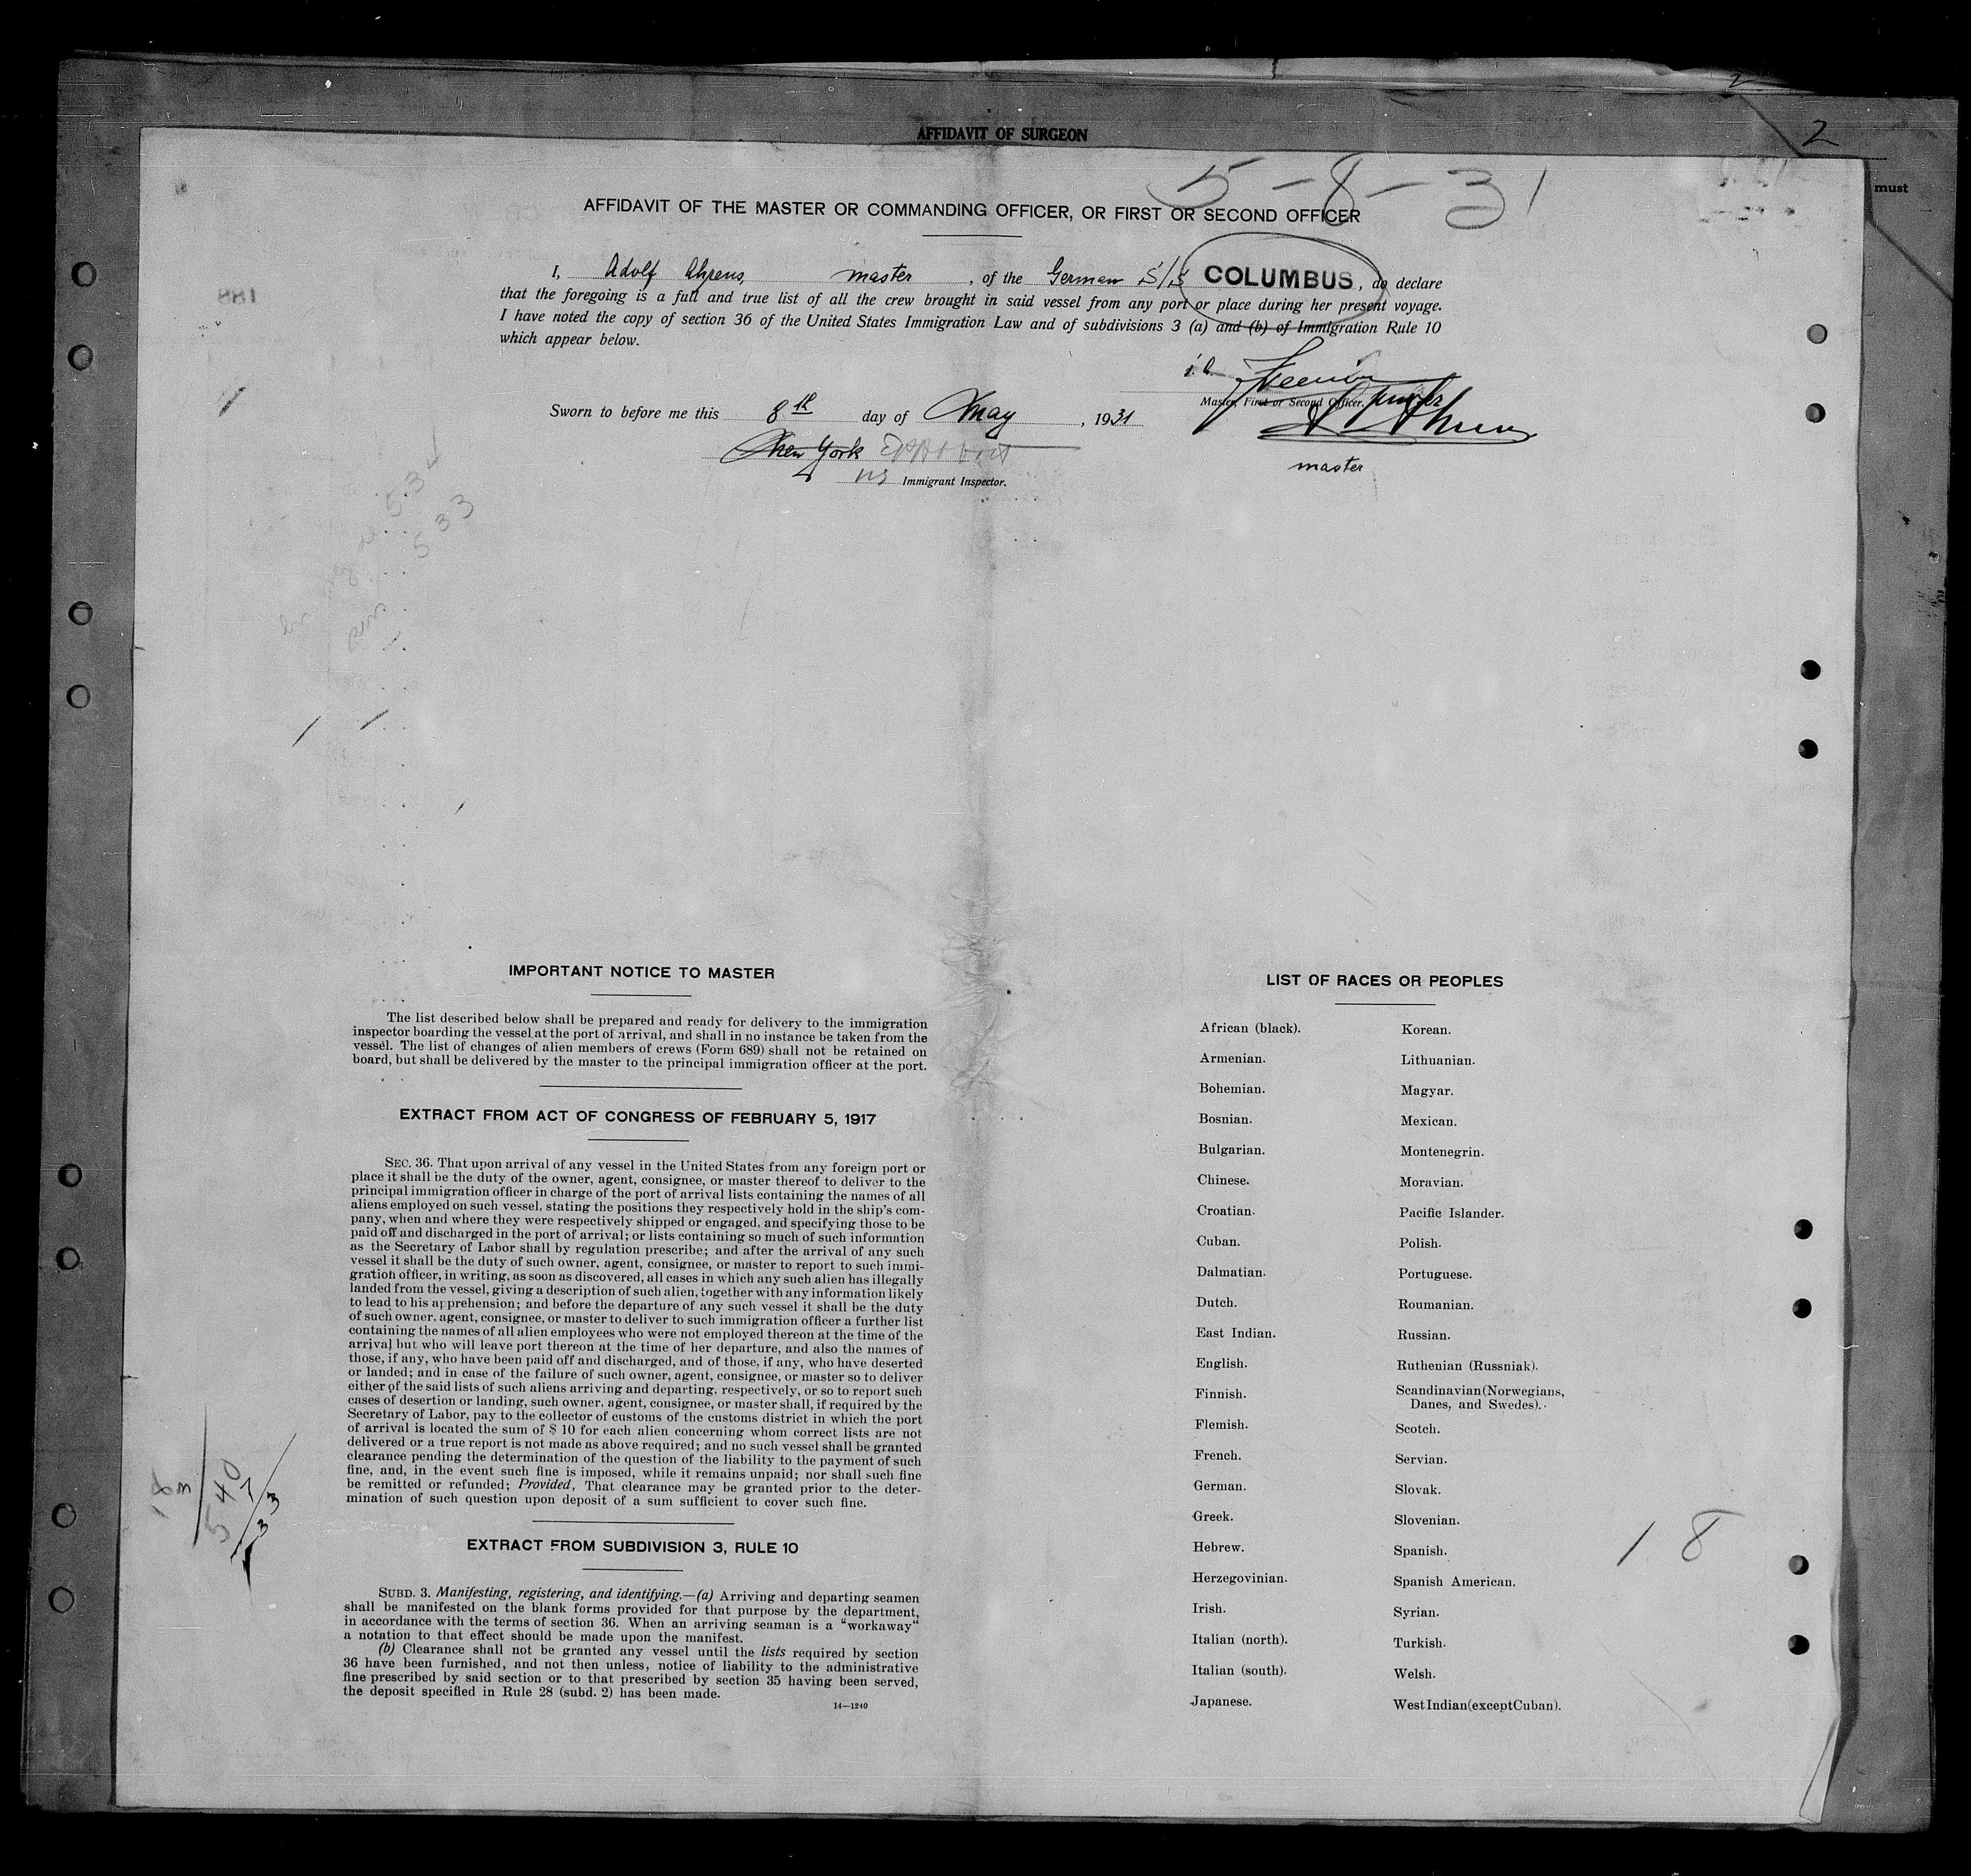 2
2
AFFIDAVIT OF SURGEON
must
5-8-31
AFFIDAVIT OF THE MASTER OR COMMANDING OFFICER, OR FIRST OR SECOND OFFICER
I, Adolf Ahrens, master, of the German S/S COLUMBUS, do declare
that the foregoing is a full and true list of all the crew brought in said vessel from any port or place during her present voyage.
I have noted the copy of section 36 of the United States Immigration Law and of subdivisions 3 (a) and (b) of Immigration Rule 10
which appear below.
881
Master, First or Second Officer.
A Ahrens
master
Sworn to before me this 8th day of May, 1931
New York
Immigrant Inspector.
533
IMPORTANT NOTICE TO MASTER
The list described below shall be prepared and ready for delivery to the immigration
inspector boarding the vessel at the port of arrival, and shall in no instance be taken from the
vessel. The list of changes of alien members of crews (Form 689) shall not be retained on
board, but shall be delivered by the master to the principal immigration officer at the port.
EXTRACT FROM ACT OF CONGRESS OF FEBRUARY 5, 1917
SEC. 36. That upon arrival of any vessel in the United States from any foreign port or
place it shall be the duty of the owner, agent, consignee, or master thereof to deliver to the
principal immigration officer in charge of the port of arrival lists containing the names of all
aliens employed on such vessel, stating the positions they respectively hold in the ship's com-
pany, when and where they were respectively shipped or engaged, and specifying those to be
paid off and discharged in the port of arrival; or lists containing so much of such information
as the Secretary of Labor shall by regulation prescribe; and after the arrival of any such
vessel it shall be the duty of such owner, agent, consignee, or master to report to such immi-
gration officer, in writing, as soon as discovered, all cases in which any such alien has illegally
landed from the vessel, giving a description of such alien, together with any information likely
to lead to his apprehension; and before the departure of any such vessel it shall be the duty
of such owner, agent, consignee, or master to deliver to such immigration officer a further list
containing the names of all alien employees who were not employed thereon at the time of the
arrival but who will leave port thereon at the time of her departure, and also the names of
those, if any, who have been paid off and discharged, and of those, if any, who have deserted
or landed; and in case of the failure of such owner, agent, consignee, or master so to deliver
either of the said lists of such aliens arriving and departing, respectively, or so to report such
cases of desertion or landing, such owner, agent, consignee, or master shall, if required by the
Secretary of Labor, pay to the collector of customs of the customs district in which the port
of arrival is located the sum of $ 10 for each alien concerning whom correct lists are not
delivered or a true report is not made as above required; and no such vessel shall be granted
clearance pending the determination of the question of the liability to the payment of such
fine, and, in the event such fine is imposed, while it remains unpaid; nor shall such fine
be remitted or refunded; Provided, That clearance may be granted prior to the deter-
mination of such question upon deposit of a sum sufficient to cover such fine.
EXTRACT FROM SUBDIVISION 3, RULE 10
SUBD. 3. Manifesting, registering, and identifying.—(a) Arriving and departing seamen
shall be manifested on the blank forms provided for that purpose by the department,
in accordance with the terms of section 36. When an arriving seaman is a “workaway“
a notation to that effect should be made upon the manifest.
(b) Clearance shall not be granted any vessel until the lists required by section
36 have been furnished, and not then unless, notice of liability to the administrative
fine prescribed by said section or to that prescribed by section 35 having been served,
the deposit specified in Rule 28 (subd. 2) has been made.
14—1240
183
540
7
33
LIST OF RACES OR PEOPLES
African (black).
Armenian.
Bohemian.
Bosnian.
Bulgarian.
Chinese.
Croatian.
Cuban.
Dalmatian.
Dutch.
East Indian.
English.
Finnish.
Flemish.
French.
German.
Greek.
Hebrew.
Herzegovinian.
Irish.
Italian (north).
Italian (south).
Japanese.
Korean.
Lithuanian.
Magyar.
Mexican.
Montenegrin.
Moravian.
Pacific Islander.
Polish.
Portuguese.
Roumanian.
Russian.
Ruthenian (Russniak).
Scandinavian (Norwegians,
Danes, and Swedes).
Scotch.
Servian.
Slovak.
Slovenian.
Spanish.
Spanish American.
Syrian.
Turkish.
Welsh.
West Indian (except Cuban).
18